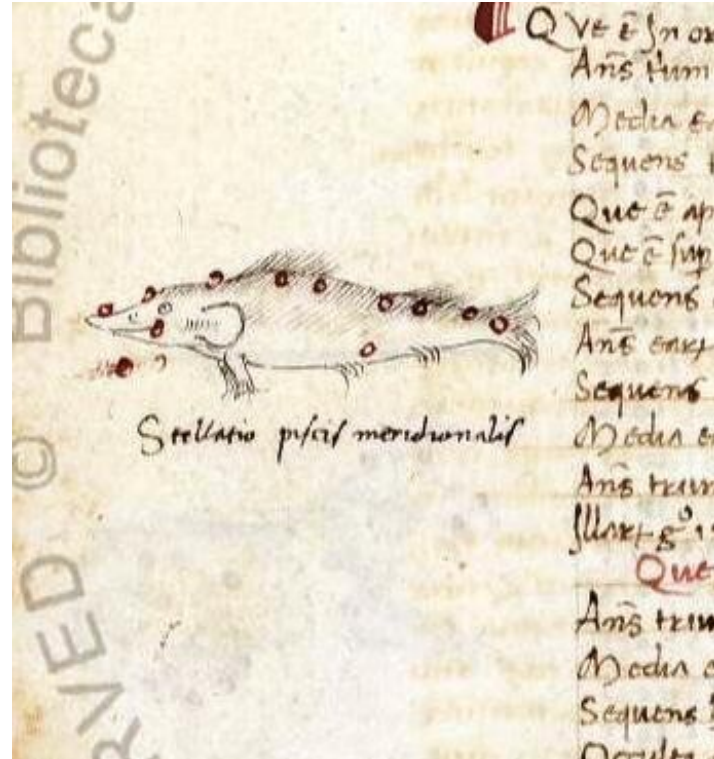 © Biblioteca
RVED
Stellatio piscis meridionalis
Que ē In or
Añs trium
Media e
Sequens
Que ē ap
Que ē sup
Sequens
Añs earꝝ
Sequens
Media e
Añs trium
Illarꝝ
Que
Añs trium
Media e
Sequens
Occulta